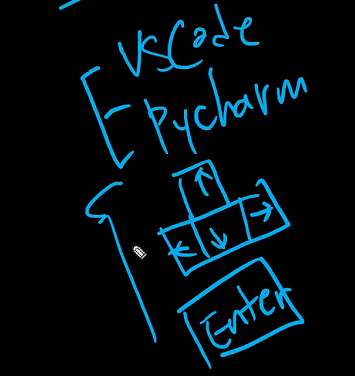 VSCode
Pycharm
↑
← ↓ →
Enter